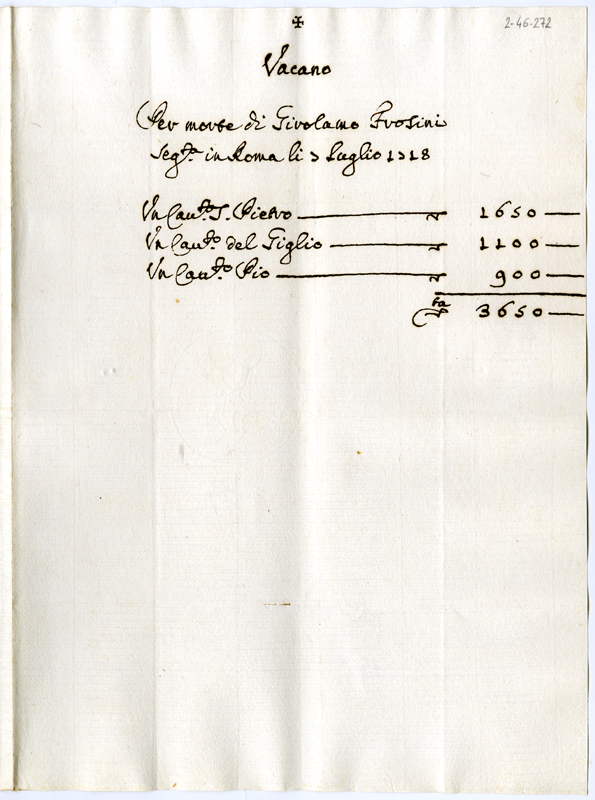 ✠
2-46-272
Vacano
Per morte di Girolamo Frosini
seg.ta in Roma li 7 Luglio 1718
Un Cau.to S. Pietro — ∇ 1650 —
Un Cau.to del Giglio — ∇ 1100 —
Un Cau.to Pio — ∇ 900 —
∇ta 3650 —